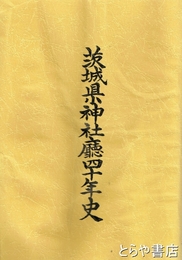 茨城県神社廳四十年史
とらや書店